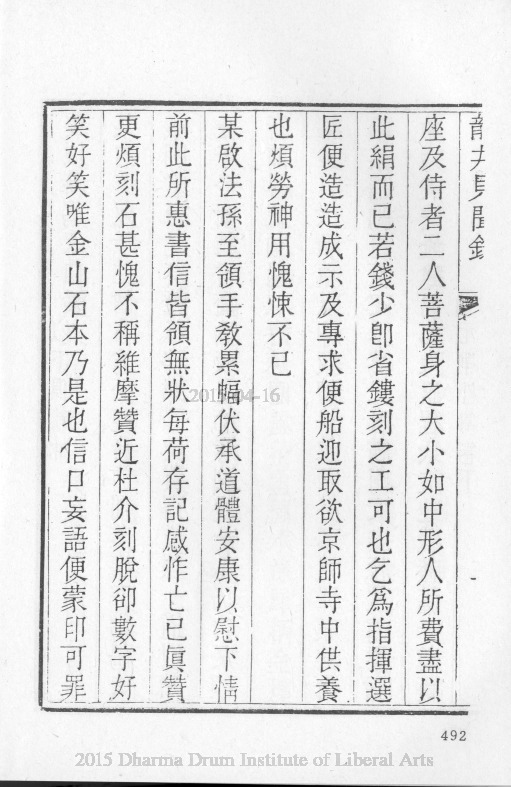 龍井見聞錄
座及侍者二人菩薩身之大小如中形人所費盡以
此絹而已若錢少卽省鏤刻之工可也乞爲指揮選
匠便造造成示及專求便船迎取欲京師寺中供養
也煩勞神用愧悚不已
某啟法孫至領手教累幅伏承道體安康以慰下情
前此所惠書信皆領無狀每荷存記感怍亡已眞贊
更煩刻石甚愧不稱維摩贊近杜介刻脫卻數字好
笑好笑唯金山石本乃是也信口妄語便蒙印可罪
492
2015 Dharma Drum Institute of Liberal Arts